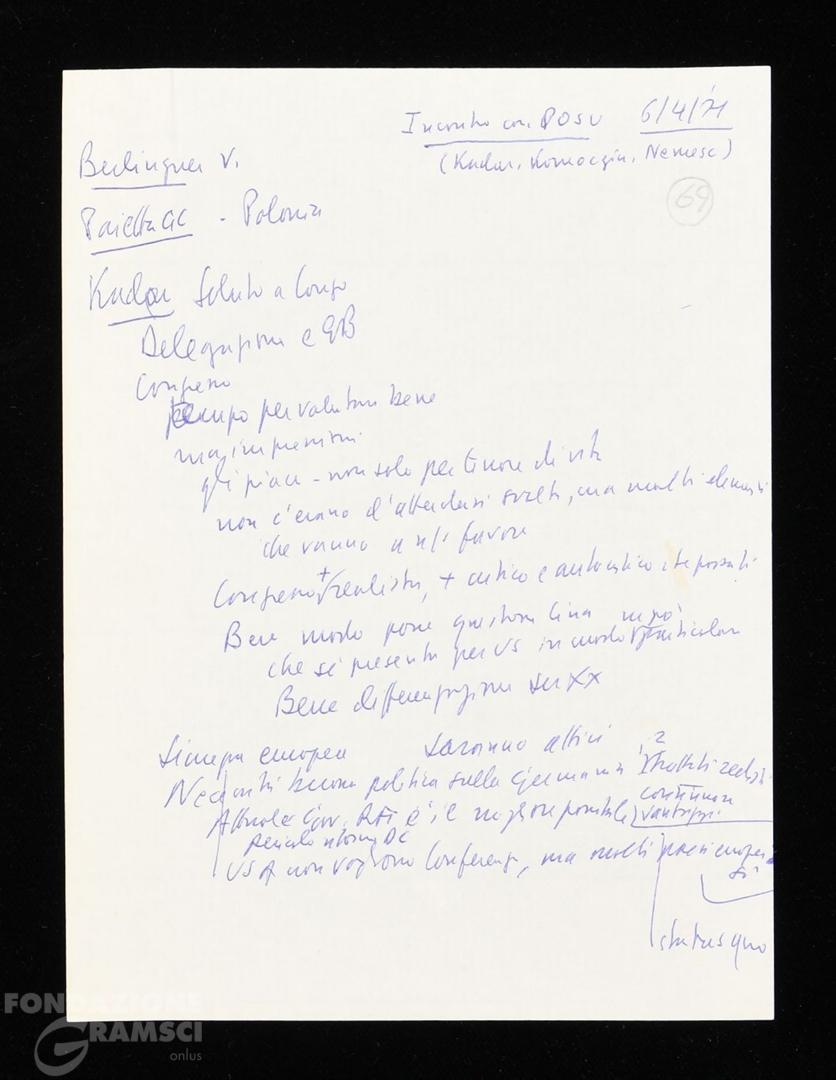 Incontro con POSU 6/4/71
(Kadar, Komoczin, Nemesc)
69
Berlinguer V.
Paietta GC - Polonia
Kadar Saluto a Longo
Delegazione e GB
Congresso
tempo per valutare bene
ma impressioni
gli piace - non solo per tenore di vita
non c'erano d'attendersi svolte, ma molti elementi
che vanno a ns/ favore
Congresso + realista, + critico e autocritico che passati
Bene modo pone questione Cina
che si presenta per US in modo particolare
Bene differenziazione su XX
Europea saranno attivi
buona politica sulla Germania
Attuale Gov. RFT è il migliore possibile
Pericolo ritorno DC
continuare
USA non vogliono Conferenza, ma molti paesi europei
sì
status quo
FONDAZIONE
GRAMSCI
onlus